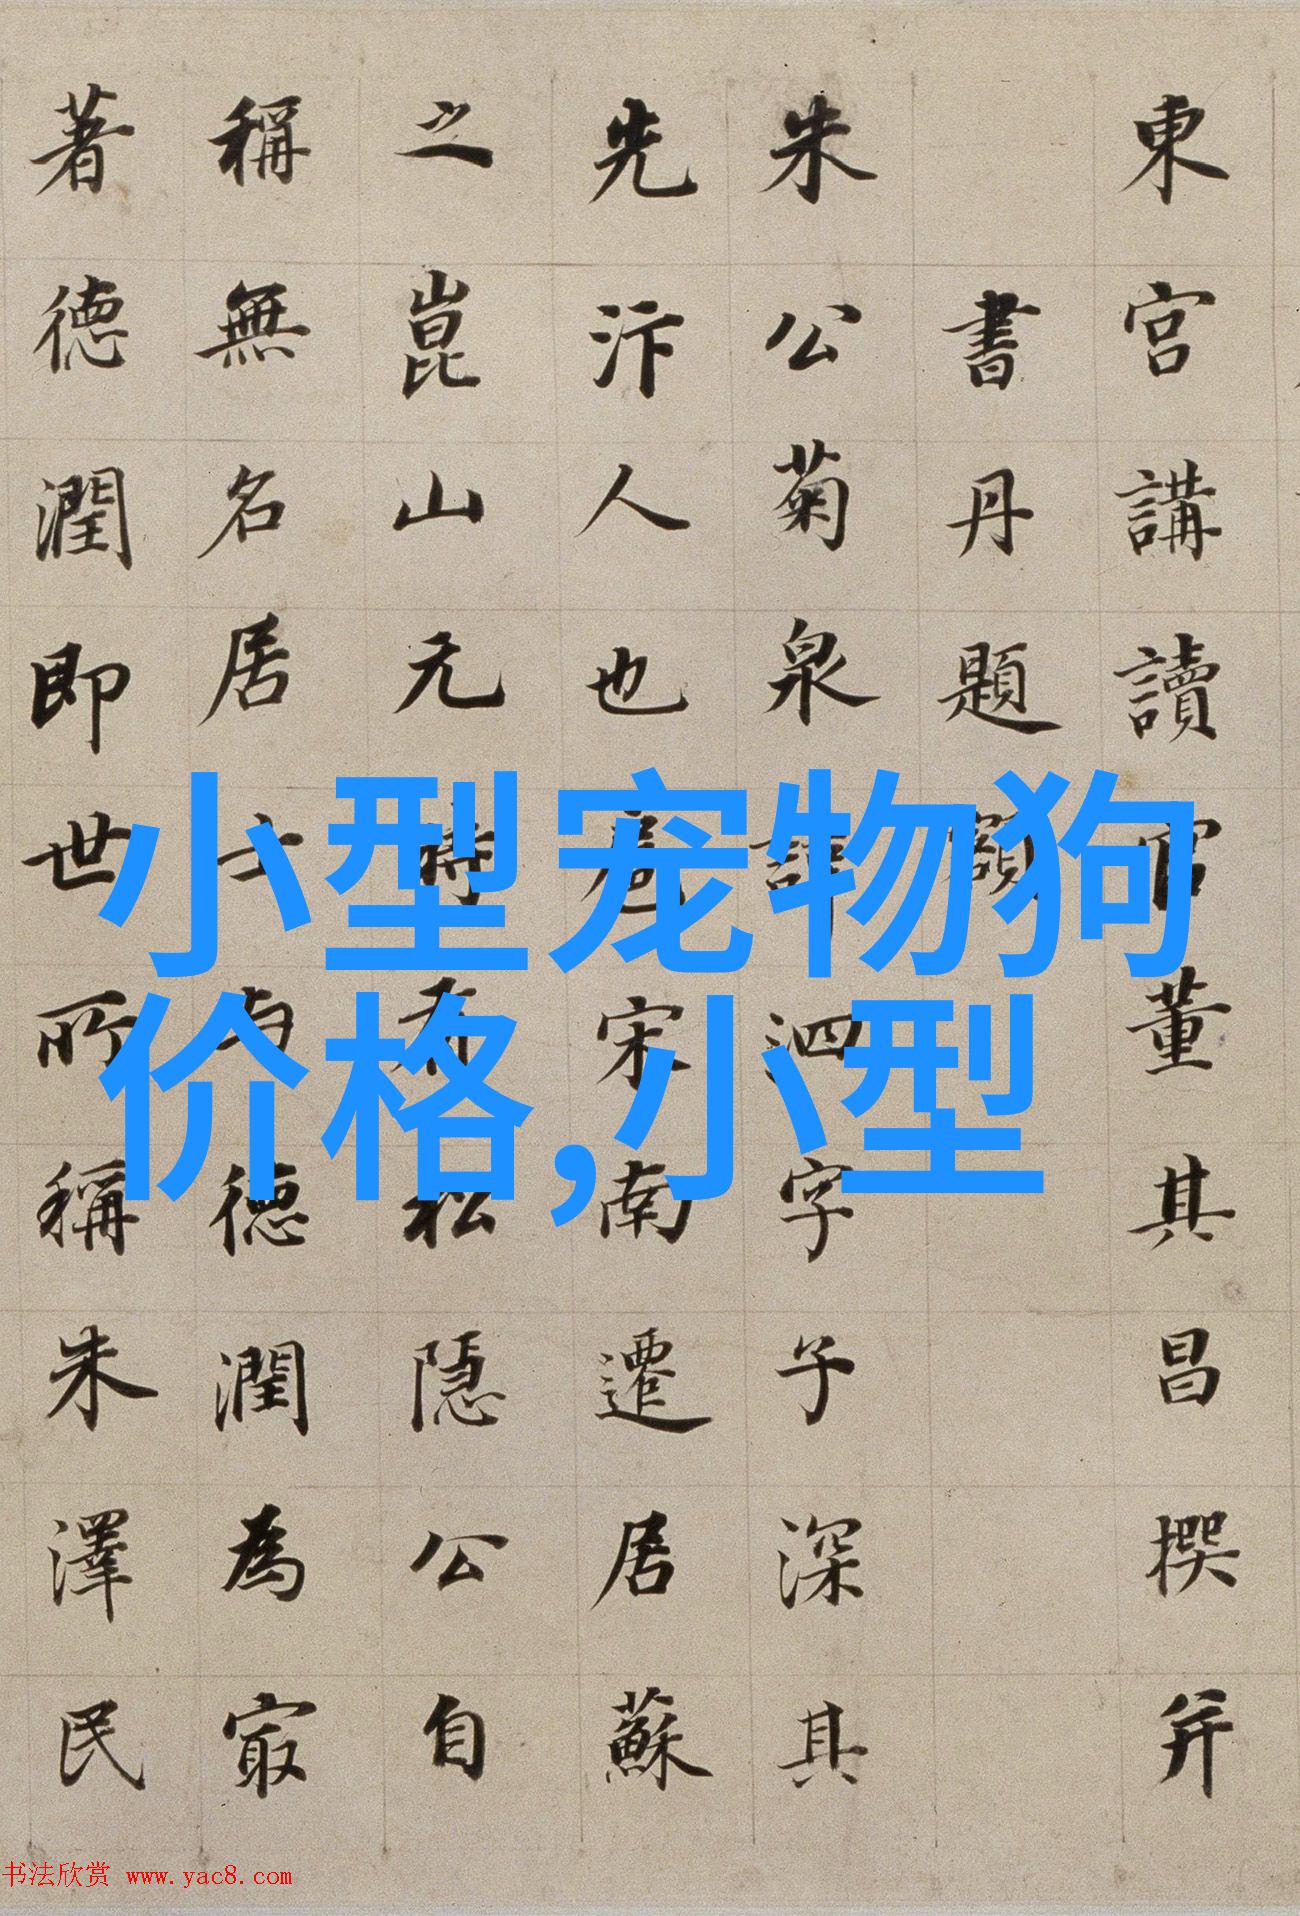 東宮講讀官董其昌撰并
書丹題額
朱公菊泉諱泗字子深其
先汴人也扈宋南遷居蘇
之崑山元時有松隱公自
稱無名居士与德潤為寂
著德潤即世所稱朱澤民
小型宠物狗
价格,小型
书法欣赏 www.yac8.com